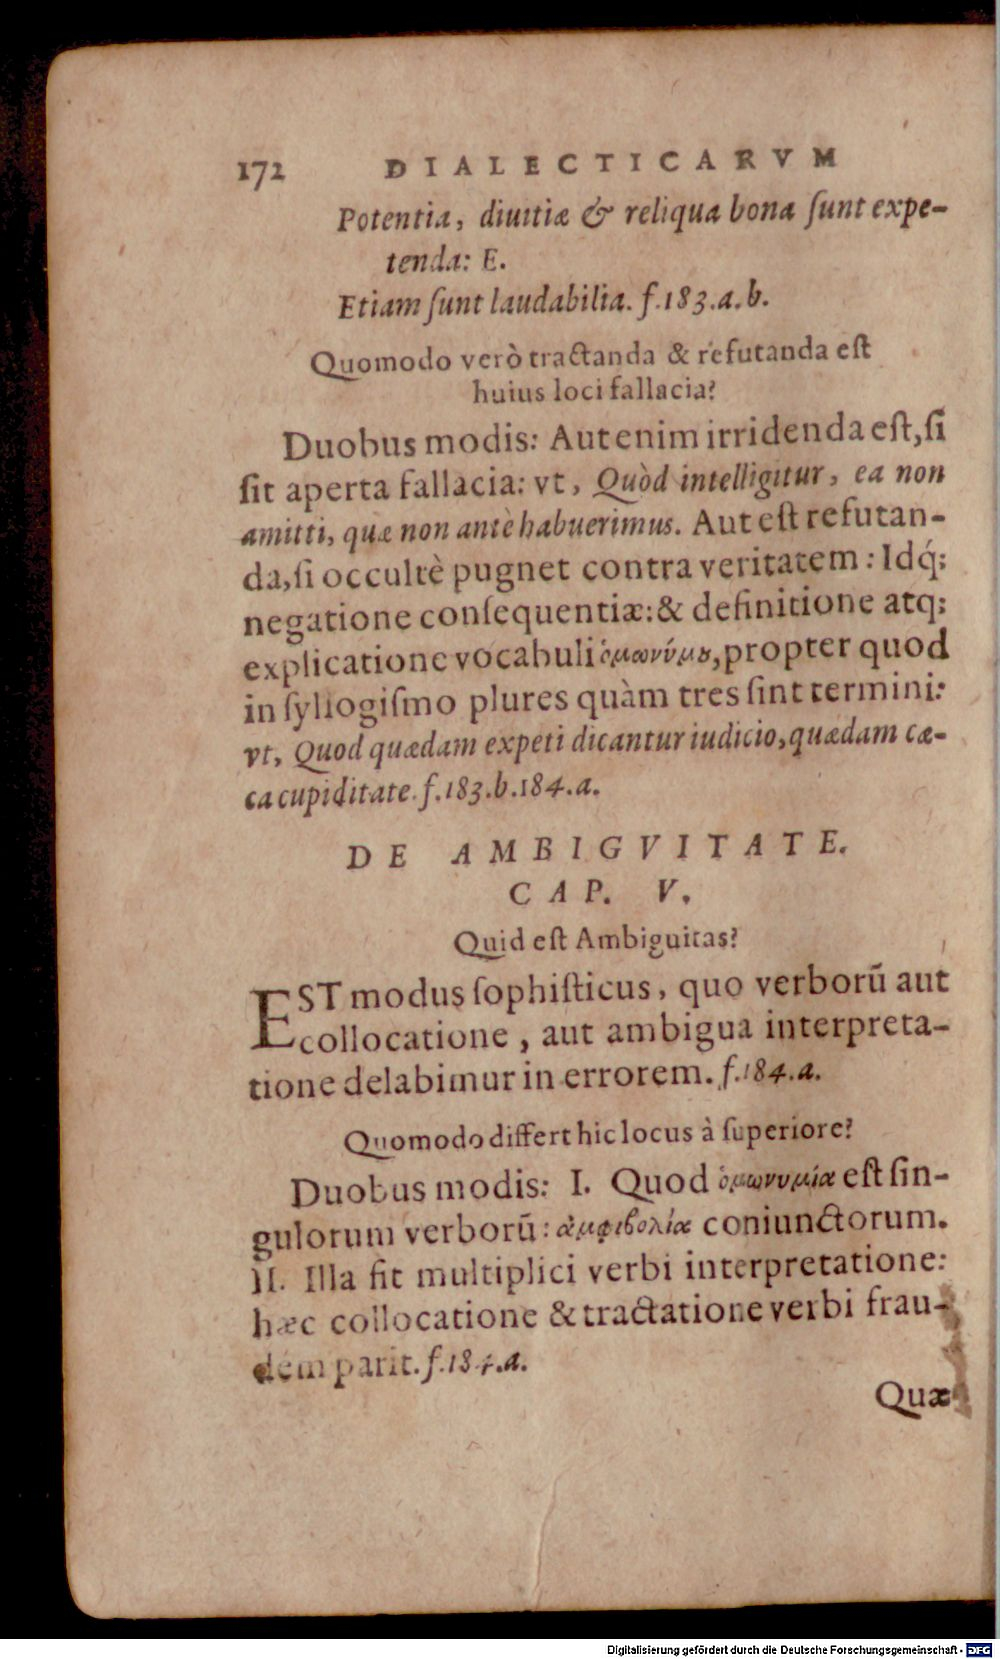 172 DIALECTICARVM
Potentia, diuitiæ & reliqua bona ſunt expe-
tenda: E.
Etiam ſunt laudabilia. f.183.a.b.
Quomodo verò tractanda & refutanda eſt
huius loci fallacia?
Duobus modis: Aut enim irridenda eſt, ſi
ſit aperta fallacia: vt, Quòd intelligitur, ea non
amitti, quæ non antè habuerimus. Aut eſt refutan-
da, ſi occultè pugnet contra veritatem: Idq́;
negatione conſequentiæ: & definitione atq;
explicatione vocabuli ὁμωνύμȣ, propter quod
in ſyllogiſmo plures quàm tres ſint termini:
vt, Quod quædam expeti dicantur iudicio, quædam cæ-
ca cupiditate. f.183.b.184.a.
DE AMBIGVITATE.
CAP. V.
Quid eſt Ambiguitas?
EST modus ſophiſticus, quo verborũ aut
collocatione, aut ambigua interpreta-
tione delabimur in errorem. f.184.a.
Quomodo differt hic locus à ſuperiore?
Duobus modis: I. Quod ὁμωνυμία eſt ſin-
gulorum verborũ: ἀμφιβολία coniunctorum.
II. Illa fit multiplici verbi interpretatione:
hæc collocatione & tractatione verbi frau-
dem parit. f.184.a.
Quæ
Digitalisierung gefördert durch die Deutsche Forschungsgemeinschaft - DFG